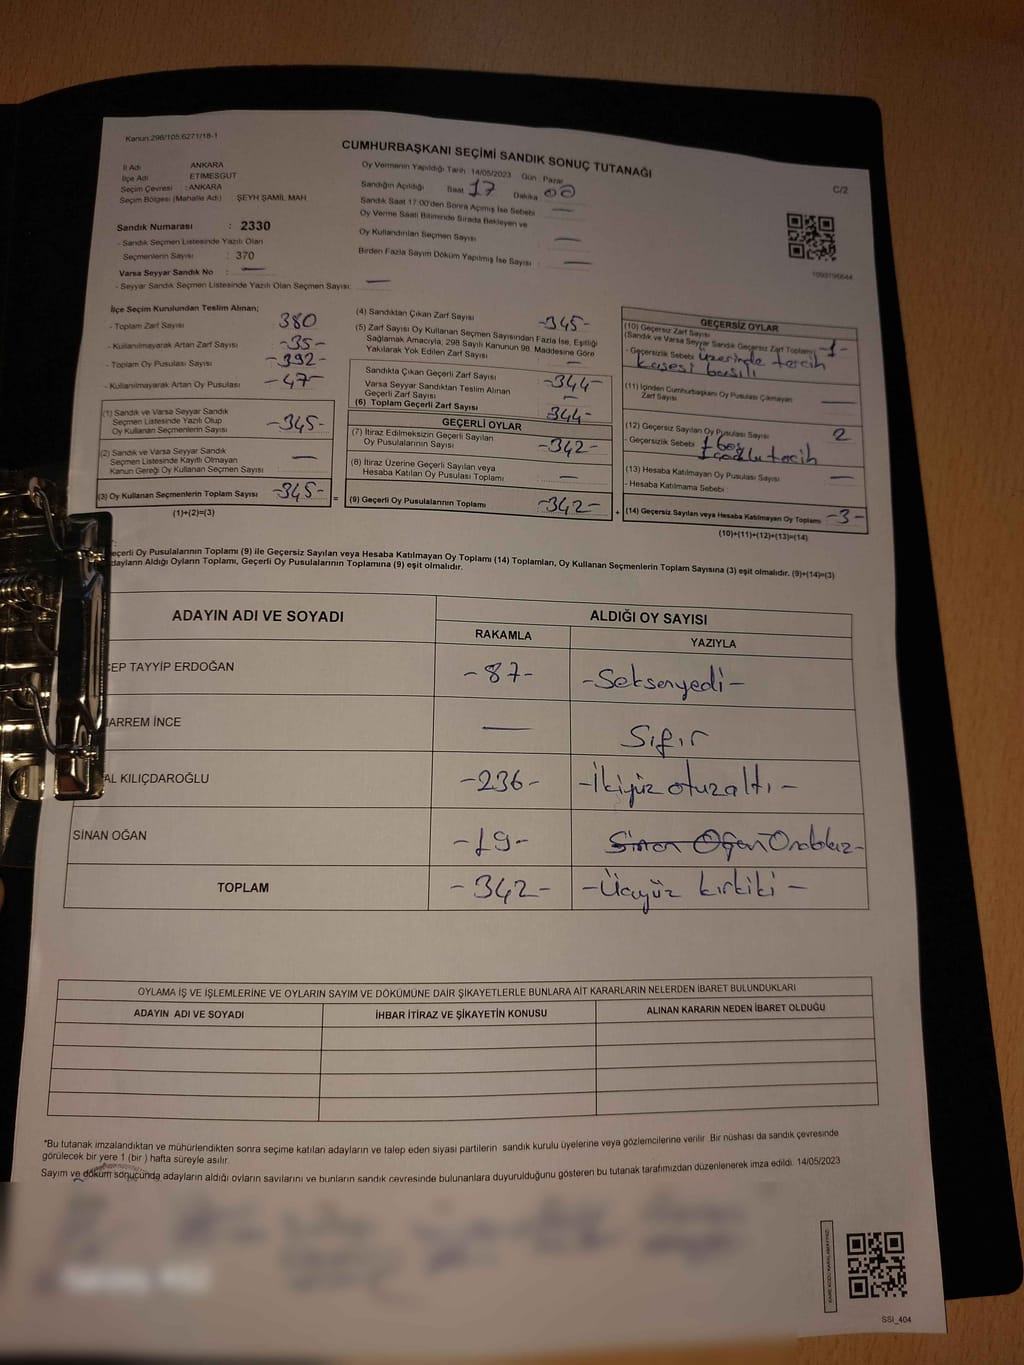 Kanun:298/105:6271/18-1
CUMHURBAŞKANI SEÇİMİ SANDIK SONUÇ TUTANAĞI
C/2
İl Adı ANKARA
İlçe Adı ETIMESGUT
Seçim Çevresi : ANKARA
Seçim Bölgesi (Mahalle Adı) ŞEYH ŞAMİL MAH
Sandık Numarası : 2330
- Sandık Seçmen Listesinde Yazılı Olan
Seçmenlerin Sayısı : 370
Varsa Seyyar Sandık No : —
- Seyyar Sandık Seçmen Listesinde Yazılı Olan Seçmen Sayısı: —
Oy Vermenin Yapıldığı Tarih 14/05/2023 Gün Pazar
Sandığın Açıldığı Saat 17 Dakika 00
Sandık Saat 17:00'den Sonra Açımış İse Sebebi —
Oy Verme Saati Bitiminde Sırada Bekleyen ve
Oy Kullandırılan Seçmen Sayısı —
Birden Fazla Sayım Döküm Yapılmış İse Sayısı : —
1093796644
İlçe Seçim Kurulundan Teslim Alınan;
- Toplam Zarf Sayısı 380
- Kullanılmayarak Artan Zarf Sayısı -35-
- Toplam Oy Pusulası Sayısı -392-
- Kullanılmayarak Artan Oy Pusulası -47-
(1) Sandık ve Varsa Seyyar Sandık
Seçmen Listesinde Yazılı Olup
Oy Kullanan Seçmenlerin Sayısı -345-
(2) Sandık ve Varsa Seyyar Sandık
Seçmen Listesinde Kayıtlı Olmayan
Kanun Gereği Oy Kullanan Seçmen Sayısı —
(3) Oy Kullanan Seçmenlerin Toplam Sayısı -345- =
(1)+(2)=(3)
(4) Sandıktan Çıkan Zarf Sayısı -345-
(5) Zarf Sayısı Oy Kullanan Seçmen Sayısından Fazla İse, Eşitliği
Sağlamak Amacıyla, 298 Sayılı Kanunun 98. Maddesine Göre
Yakılarak Yok Edilen Zarf Sayısı —
Sandıkta Çıkan Geçerli Zarf Sayısı -344-
Varsa Seyyar Sandıktan Teslim Alınan
Geçerli Zarf Sayısı —
(6) Toplam Geçerli Zarf Sayısı 344-
GEÇERLİ OYLAR
(7) İtiraz Edilmeksizin Geçerli Sayılan
Oy Pusulalarının Sayısı -342-
(8) İtiraz Üzerine Geçerli Sayılan veya
Hesaba Katılan Oy Pusulası Toplamı —
(9) Geçerli Oy Pusulalarının Toplamı -342- +
GEÇERSİZ OYLAR
(10) Geçersiz Zarf Sayısı
(Sandık ve Varsa Seyyar Sandık Geçersiz Zarf Toplamı) -1-
- Geçersizlik Sebebi üzerinde tercih
kaşesi basılı
(11) İçinden Cumhurbaşkanı Oy Pusulası Çıkmayan
Zarf Sayısı —
(12) Geçersiz Sayılan Oy Pusulası Sayısı 2
- Geçersizlik Sebebi 1 boş
tercih
(13) Hesaba Katılmayan Oy Pusulası Sayısı —
- Hesaba Katılmama Sebebi
(14) Geçersiz Sayılan veya Hesaba Katılmayan Oy Toplamı -3-
(10)+(11)+(12)+(13)=(14)
eçerli Oy Pusulalarının Toplamı (9) ile Geçersiz Sayılan veya Hesaba Katılmayan Oy Toplamı (14) Toplamları, Oy Kullanan Seçmenlerin Toplam Sayısına (3) eşit olmalıdır. (9)+(14)=(3)
dayların Aldığı Oyların Toplamı, Geçerli Oy Pusulalarının Toplamına (9) eşit olmalıdır.
ADAYIN ADI VE SOYADI
ALDIĞI OY SAYISI
RAKAMLA YAZIYLA
CEP TAYYİP ERDOĞAN -87- -Seksenyedi-
ARREM İNCE — Sıfır
AL KILIÇDAROĞLU -236- -İkiyüz otuzaltı-
SİNAN OĞAN -19- Sinan Oğan Ondokuz-
TOPLAM -342- -Üçyüz kırkiki-
OYLAMA İŞ VE İŞLEMLERİNE VE OYLARIN SAYIM VE DÖKÜMÜNE DAİR ŞİKAYETLERLE BUNLARA AİT KARARLARIN NELERDEN İBARET BULUNDUKLARI
ADAYIN ADI VE SOYADI İHBAR İTİRAZ VE ŞİKAYETİN KONUSU ALINAN KARARIN NEDEN İBARET OLDUĞU
*Bu tutanak imzalandıktan ve mühürlendikten sonra seçime katılan adayların ve talep eden siyasi partilerin sandık kurulu üyelerine veya gözlemcilerine verilir. Bir nüshası da sandık çevresinde
görülecek bir yere 1 (bir ) hafta süreyle asılır.
Sayım ve döküm sonucunda adayların aldığı oyların sayılarını ve bunların sandık çevresinde bulunanlara duyurulduğunu gösteren bu tutanak tarafımızdan düzenlenerek imza edildi. 14/05/2023
SSI_404